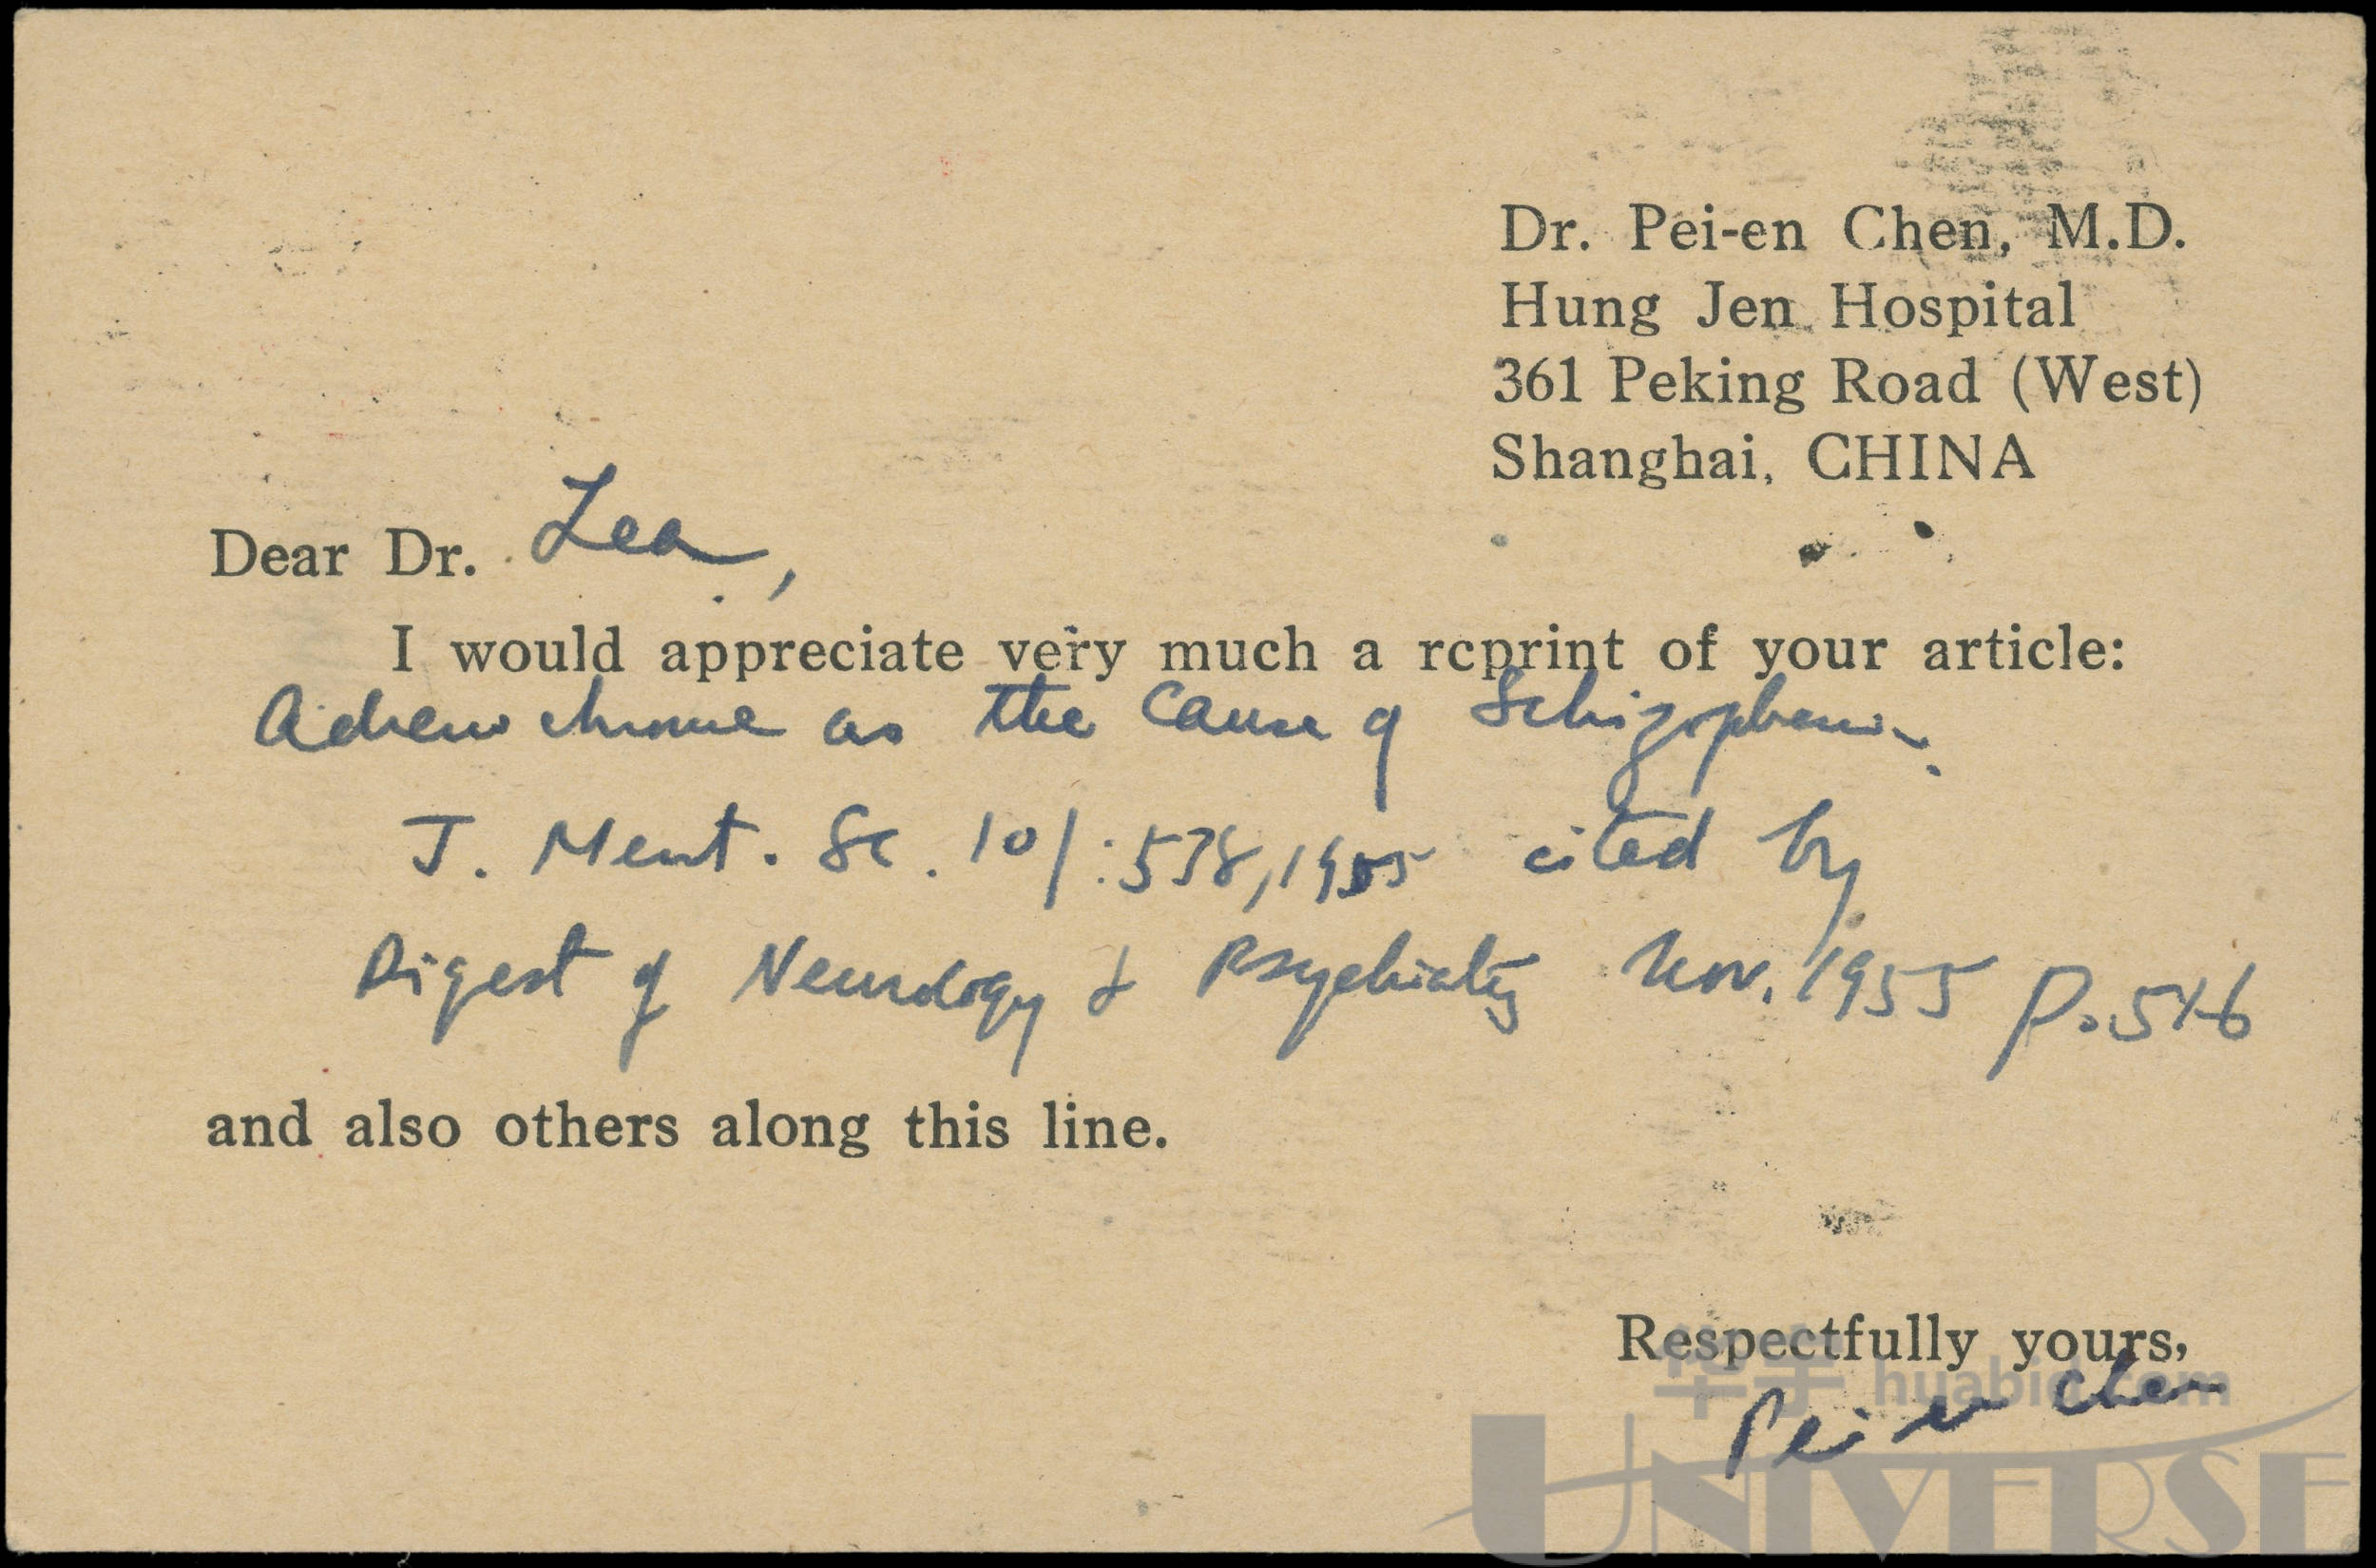 Dr. Pei-en Chen, M.D.
Hung Jen Hospital
361 Peking Road (West)
Shanghai, CHINA
Dear Dr. Lea,
I would appreciate very much a reprint of your article:
Adrenochrome as the Cause of Schizophrenia.
J. Ment. Sc. 101:538, 1955 cited by
Digest of Neurology & Psychiatry Nov. 1955 p.546
and also others along this line.
Respectfully yours,
Pei-en Chen
华宇 huabid.com
UNIVERSE